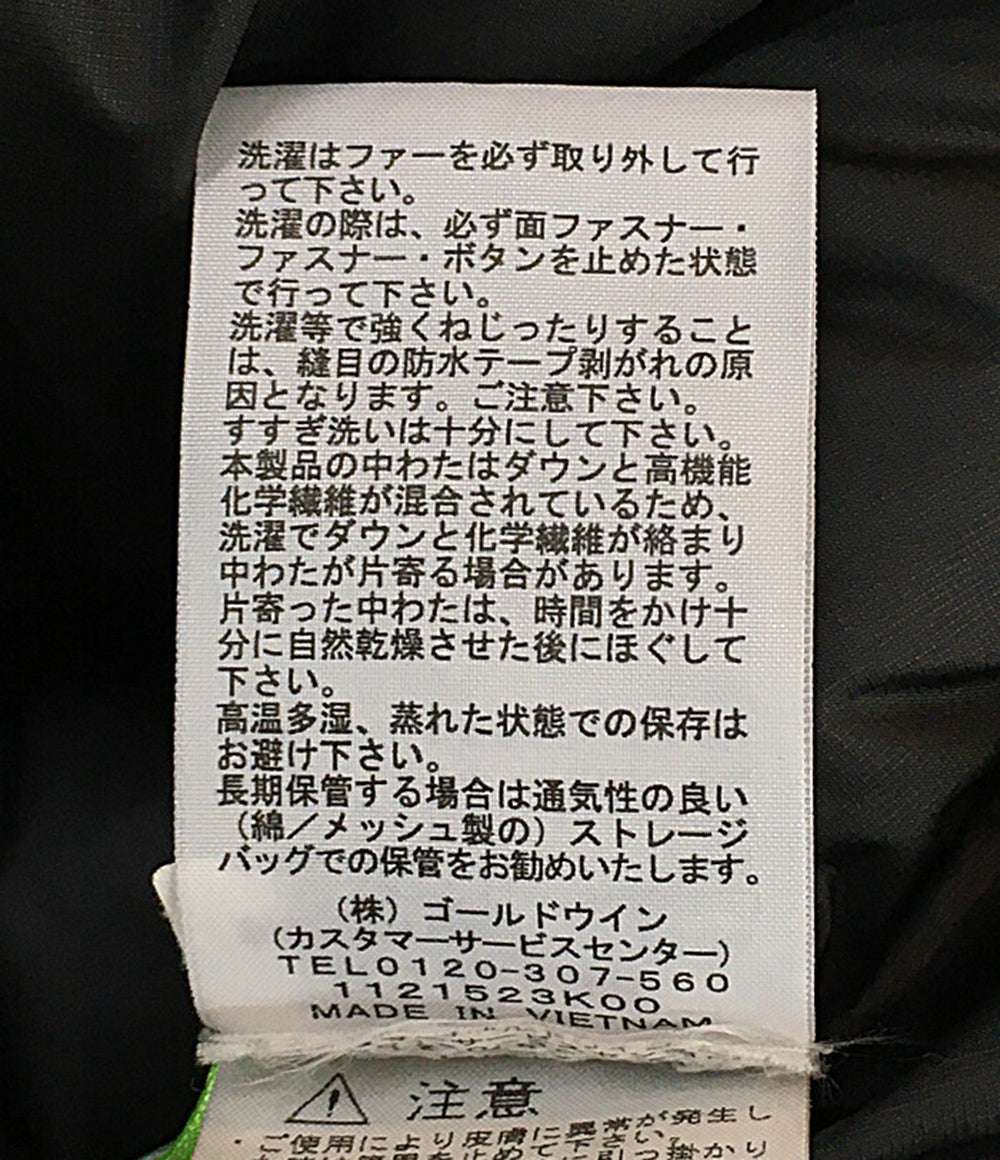 洗濯はファーを必ず取り外して行
って下さい。
洗濯の際は、必ず面ファスナー・
ファスナー・ボタンを止めた状態
で行って下さい。
洗濯等で強くねじったりすること
は、縫目の防水テープ剥がれの原
因となります。ご注意下さい。
すすぎ洗いは十分にして下さい。
本製品の中わたはダウンと高機能
化学繊維が混合されているため、
洗濯でダウンと化学繊維が絡まり
中わたが片寄る場合があります。
片寄った中わたは、時間をかけ十
分に自然乾燥させた後にほぐして
下さい。
高温多湿、蒸れた状態での保存は
お避け下さい。
長期保管する場合は通気性の良い
（綿／メッシュ製の）ストレージ
バッグでの保管をお勧めいたします。
（株）ゴールドウイン
（カスタマーサービスセンター）
TEL0120-307-560
1121523K00
MADE IN VIETNAM
注意
・ご使用により皮膚に異常が発生し
使用を止めて下さい。
引っ掛かり